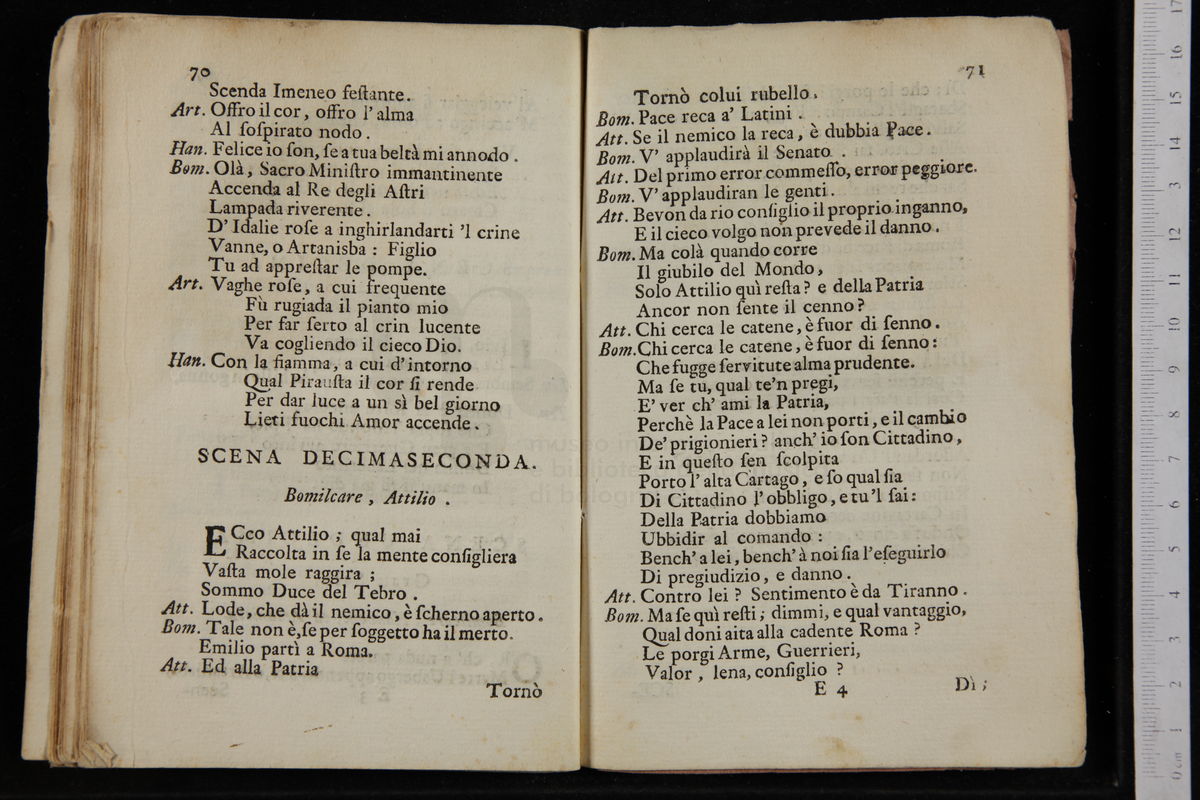 70
Scenda Imeneo feſtante.
Art. Offro il cor, offro l'alma
Al ſoſpirato nodo.
Han. Felice io ſon, ſe a tua beltà mi annodo.
Bom. Olà, Sacro Miniſtro immantinente
Accenda al Re degli Aſtri
Lampada riverente.
D' Idalie roſe a inghirlandarti 'l crine
Vanne, o Artanisba : Figlio
Tu ad appreſtar le pompe.
Art. Vaghe roſe, a cui frequente
Fù rugiada il pianto mio
Per far ſerto al crin lucente
Va cogliendo il cieco Dio.
Han. Con la fiamma, a cui d'intorno
Qual Pirauſta il cor ſi rende
Per dar luce a un sì bel giorno
Lieti fuochi Amor accende.
SCENA DECIMASECONDA.
Bomilcare, Attilio.
ECco Attilio ; qual mai
Raccolta in ſe la mente conſigliera
Vaſta mole raggira ;
Sommo Duce del Tebro.
Att. Lode, che dà il nemico, è ſcherno aperto.
Bom. Tale non è, ſe per ſoggetto ha il merto.
Emilio partì a Roma.
Att. Ed alla Patria
Tornò
71
Tornò colui rubello.
Bom. Pace reca a' Latini.
Att. Se il nemico la reca, è dubbia Pace.
Bom. V' applaudirà il Senato.
Att. Del primo error commeſſo, error peggiore.
Bom. V' applaudiran le genti.
Att. Bevon da rio conſiglio il proprio inganno,
E il cieco volgo non prevede il danno.
Bom. Ma colà quando corre
Il giubilo del Mondo,
Solo Attilio quì reſta? e della Patria
Ancor non ſente il cenno?
Att. Chi cerca le catene, è fuor di ſenno.
Bom. Chi cerca le catene, è fuor di ſenno:
Che fugge ſervitute alma prudente.
Ma ſe tu, qual te'n pregi,
E' ver ch' ami la Patria,
Perchè la Pace a lei non porti, e il cambio
De' prigionieri? anch' io ſon Cittadino,
E in queſto ſen ſcolpita
Porto l' alta Cartago, e ſo qual ſia
Di Cittadino l'obbligo, e tu'l ſai:
Della Patria dobbiamo
Ubbidir al comando :
Bench' a lei, bench' à noi ſia l'eſeguirlo
Di pregiudizio, e danno.
Att. Contro lei ? Sentimento è da Tiranno.
Bom. Ma ſe quì reſti ; dimmi, e qual vantaggio,
Qual doni aita alla cadente Roma ?
Le porgi Arme, Guerrieri,
Valor, lena, conſiglio ?
E 4
Dì ;